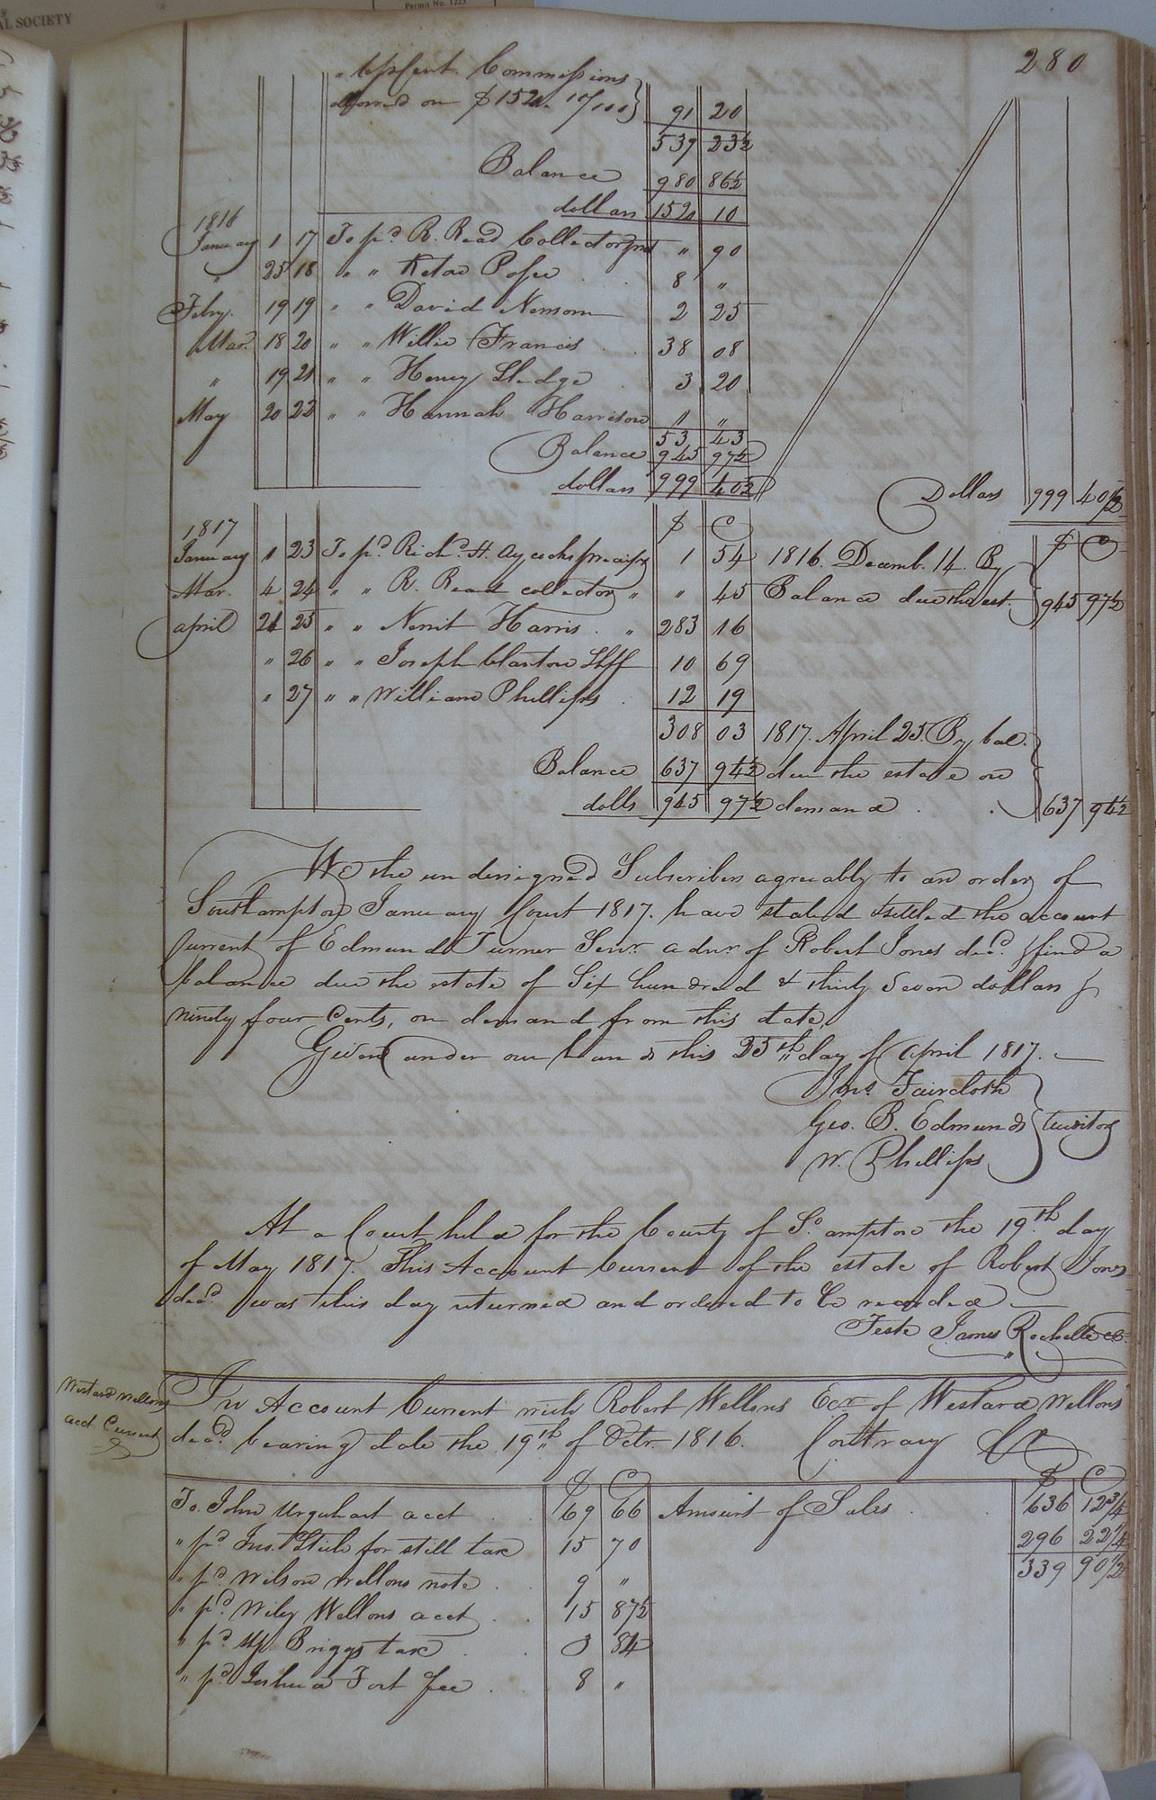 AL SOCIETY
Permit No. 1223
280
" 6 pr Cent Commissions
allowed on $ 1520. 10/100 } 91 20
539 23½
Balance 980 86½
dollars 1520 10
1816
January 1 17 To pd. R. Read Collector " 90
" 25 18 " " Posse 8 "
Feby. 19 19 " " David Newsom 2 25
Mar. 18 20 " " Willie Francis 38 08
" 19 21 " " Henry Sledge 3 20
May 20 22 " " Hannah Harrison 1 "
53 43
Balance 945 97½
dollars 999 40½ Dollars 999 40½
1817 $ C $ C
January 1 23 To pd. Richd. H. 1 54 1816. Decemb. 14. By
Mar. 4 24 " " R. Read collector " " 45 Balance due the est. 945 97½
april 24 25 " " Nemit Harris " 283 16
" 26 " " Joseph Clanton Shff 10 69
" 27 " " William Phillips 12 19
308 03 1817. April 25. By bal.
Balance 637 94½ due the estate on
dolls 945 97½ demand . . 637 94½
We the undersigned Subscribers agreeably to an order of
Southampton January Court 1817. have stated & settled the account
Current of Edmund Turner Senr. admr. of Robert Jones decd. & find a
balance due the estate of Six hundred & thirty Seven dollars &
ninety four Cents, on demand from this date.
Given under our hands this 25th day of April 1817.
Jno. Faircloth
Geo. B. Edmunds
W. Phillips
At a Court held for the County of So. ampton the 19th day
of May 1817. This Account Current of the estate of Robert Jones
decd. was this day returned and ordered to be recorded
Teste James Rochelle
Westard Wellons
acct Current
In Account Current with Robert Wellons Exr of Westard Wellons
decd. bearing date the 19th of Octr. 1816. Contrary Cr
$ C $ C
To. John Urquhart acct 69 66 Amount of Sales 636 12¾
" pd. Jno. for still tax 15 70 296 22¼
" pd. Wilson Wellons note 9 " 339 90½
" pd. Wiley Wellons acct 15 87½
" pd. Briggs tax 3 84
" pd. Joshua Fort fee 8 "